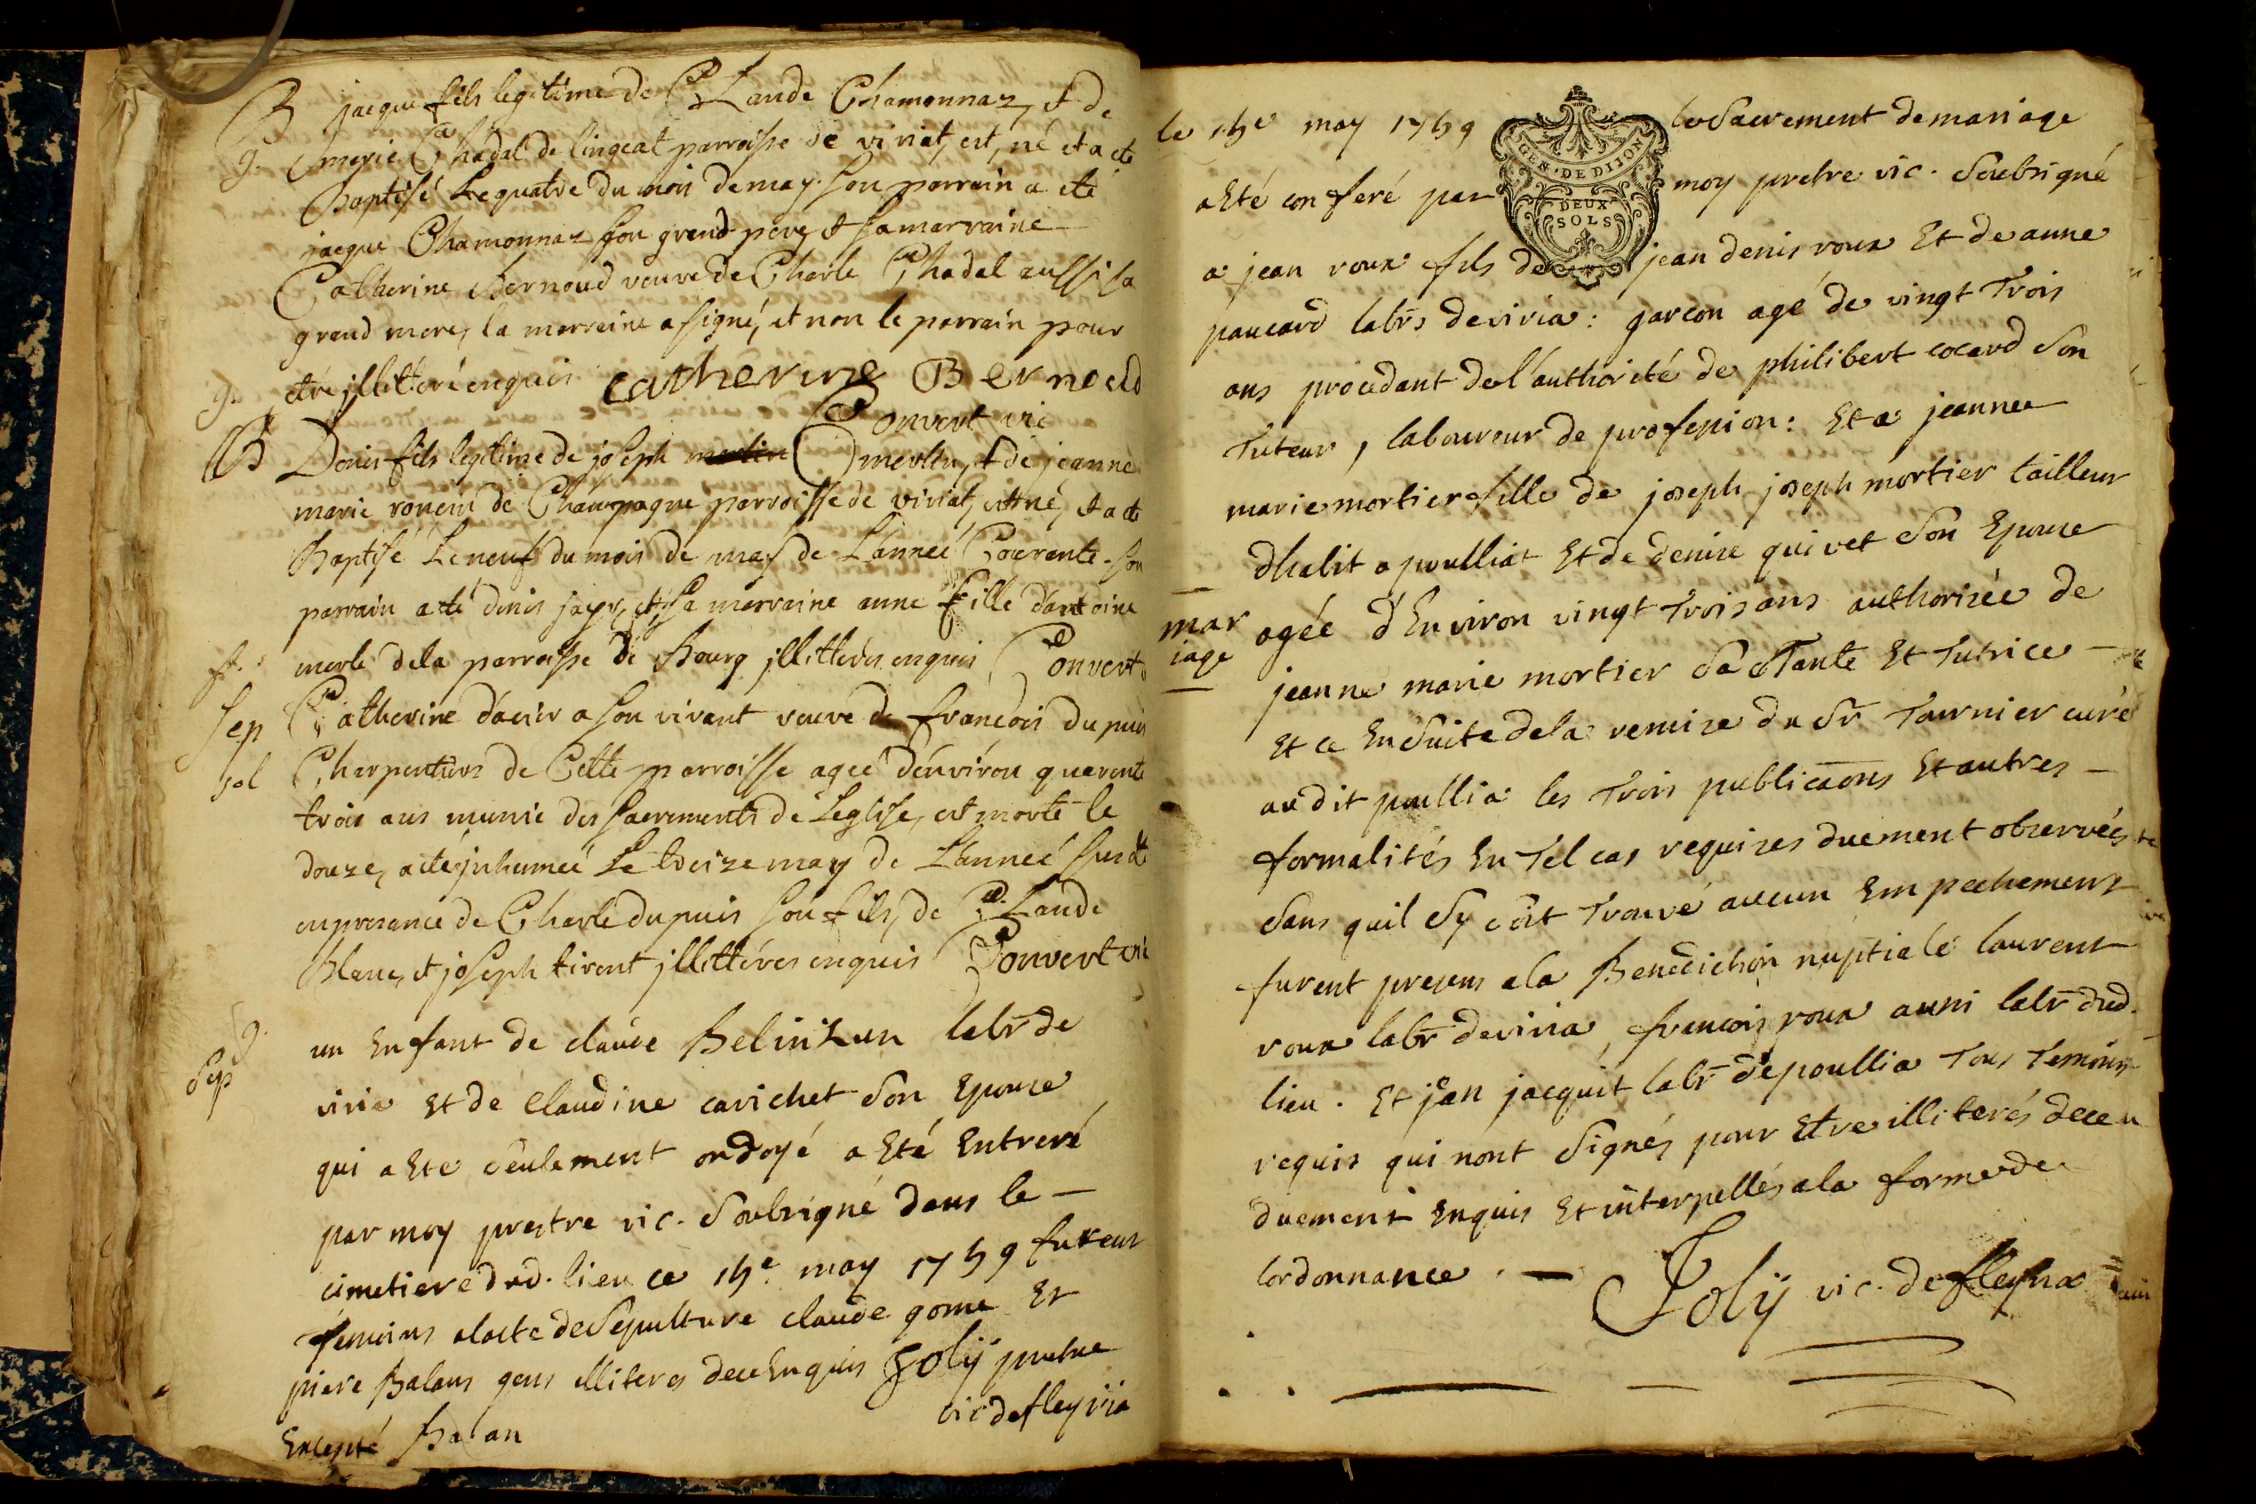 B jacque fils legitime de Claude Chamonnaz, et de
g. marie Chadal de lingeat parroisse de viriat, est, né et a eté
Baptisé Le quatre du mois de may. son parrain a eté
jacque Chamonnaz son grend pere, et sa marraine
Catherine Bernoud veuve de Charle Chadal aussi sa
grend mere, la marraine a signé, et non le parrain pour
g. etre jllitteré enquis catherine Bernoud
Convert vic
B Denis fils legitime de joseph merlin, et de jeanne
marie de Champagne parroisse de viriat, est né, et a eté
Baptisé Le neuf du mois de may de L'anneé Courente. son
parrain a eté denis et sa marraine anne fille d'antoine
merle de la parroisse de Bourg jllitterés enquis Convert
sep Catherine a son vivant veuve de francois du puis
sol Charpentiers de Cette parroisse ageé d'énviron quarente
trois ans munie des sacrements de Leglise, est morte le
douze, a eté jnhumeé Le treize may de L'anneé susd
en presance de Charle dupuis son fils, de Claude
Blanc, et joseph tirent jllittéres enquis Convert vic
g.
Sep
un Enfant de claude labr de
viria Et de Claudine carichet son Epouze
qui a Eté seulement ondoyé a Eté Entreré
par moy prestre vic. soubsigné dans le —
cimetiere dud. lieu ce 15e may 1759 furent
temoins a lacte de sepulture claude goma Et
piere Balans gens illiteres de ce Enquis Joly pretre
Excepté Balan vic de fleyria
le 15e may 1759 le Sacrement de mariage
GEN. DE DIJON
DEUX
SOLS
a Eté conferé par moy pretre vic. Soubsigné
a jean roux fils de jean denis roux Et de anne
paucard labrs de viria : garcon agé de vingt Trois
ans procedant de l'authorité de philibert cocard son
Tuteur, laboureur de profession : Et a jeanne
marie mortier fille de joseph joseph mortier tailleur
dhabit a poulliat Et de denize quivet son Epouze
mar
iage
agée d'Environ vingt Trois ans authorizée de
jeanne marie mortier sa Tante Et Tutrice —
Et ce En suite de la remize du Sr Tournier curé
audit poullia les Trois publicaons Et autres —
formalités En Tel cas requizes duement observés
sans quil sy soit Trouvé aucun Empechement
furent presens a la Benediction nuptiale laurent
roux labr de viria, francois roux aussi labr dud.
lieu. Et jean jacquit labr de poullia Tous Temoins
requis qui nont signés pour Etre illiterés de ce
duement Enquis Et interpellés a la forme de
lordonnance. — Joly vic. de fleyria